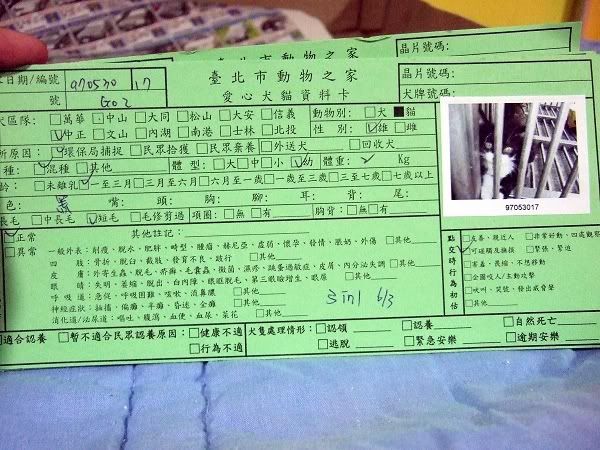 晶片號碼:
日期/編號 970530 17 臺北市動物之家 晶片號碼:
號 G02 愛心犬貓資料卡 犬牌號碼:
區隊:□萬華 □中山 □大同 □松山 □大安 □信義 動物別:□犬 ■貓
☑中正 □文山 □內湖 □南港 □士林 □北投 性 別:☑雄 □雌
所原因:☑環保局捕捉 □民眾拾獲 □民眾棄養 □外送犬 □回收犬
種:☑混種 □其他 體 型:□大 □中 □小 ☑幼 體重: Kg
齡:□未離乳 ☑一至三月 □三月至六月 □六月至一歲 □一歲至三歲 □三至七歲 □七歲以上
色: 嘴: 頭: 胸: 腳: 耳: 背: 尾:
長毛 □中長毛 ☑短毛 □毛修剪過 項圈:□無 □有 胸背:□無 □有
97053017
☑正常 其他註記:
□異常 一般外表:削瘦、脫水、肥胖、畸型、腫瘤、赫尼亞、虛弱、懷孕、發情、脹奶、外傷 □其他
四 肢:骨折、脫臼、截肢、發育不良、跛行 □其他
皮 膚:外寄生蟲、脫毛、疥癬、毛囊蟲、黴菌、濕疹、跳蚤過敏症、皮屑、內分泌失調 □其他
眼 睛:失明、萎縮、脫出、白內障、眼眶脫毛、第三眼瞼增生、眼屎 □其他
呼 吸 道:急促、呼吸困難、咳嗽、流鼻膿 □其他
神經症狀:抽搐、偏癱、半癱、昏迷、全癱 □其他
消化道/泌尿道:嘔吐、腹瀉、血便、血尿、菜花 □其他
3in1 6/3
點交時行為初估
□友善、親近人 □非常好動、四處觀察
☑可碰觸及擁抱 □緊張、緊迫
□害羞、畏縮、不想移動
□企圖咬人/主動攻擊
□吠叫、哭號、發出威脅聲
適合認養 □暫不適合民眾認養原因:□健康不適 犬隻處理情形:□認領 □認養 □自然死亡
□行為不適 □逃脫 □緊急安樂 □逾期安樂